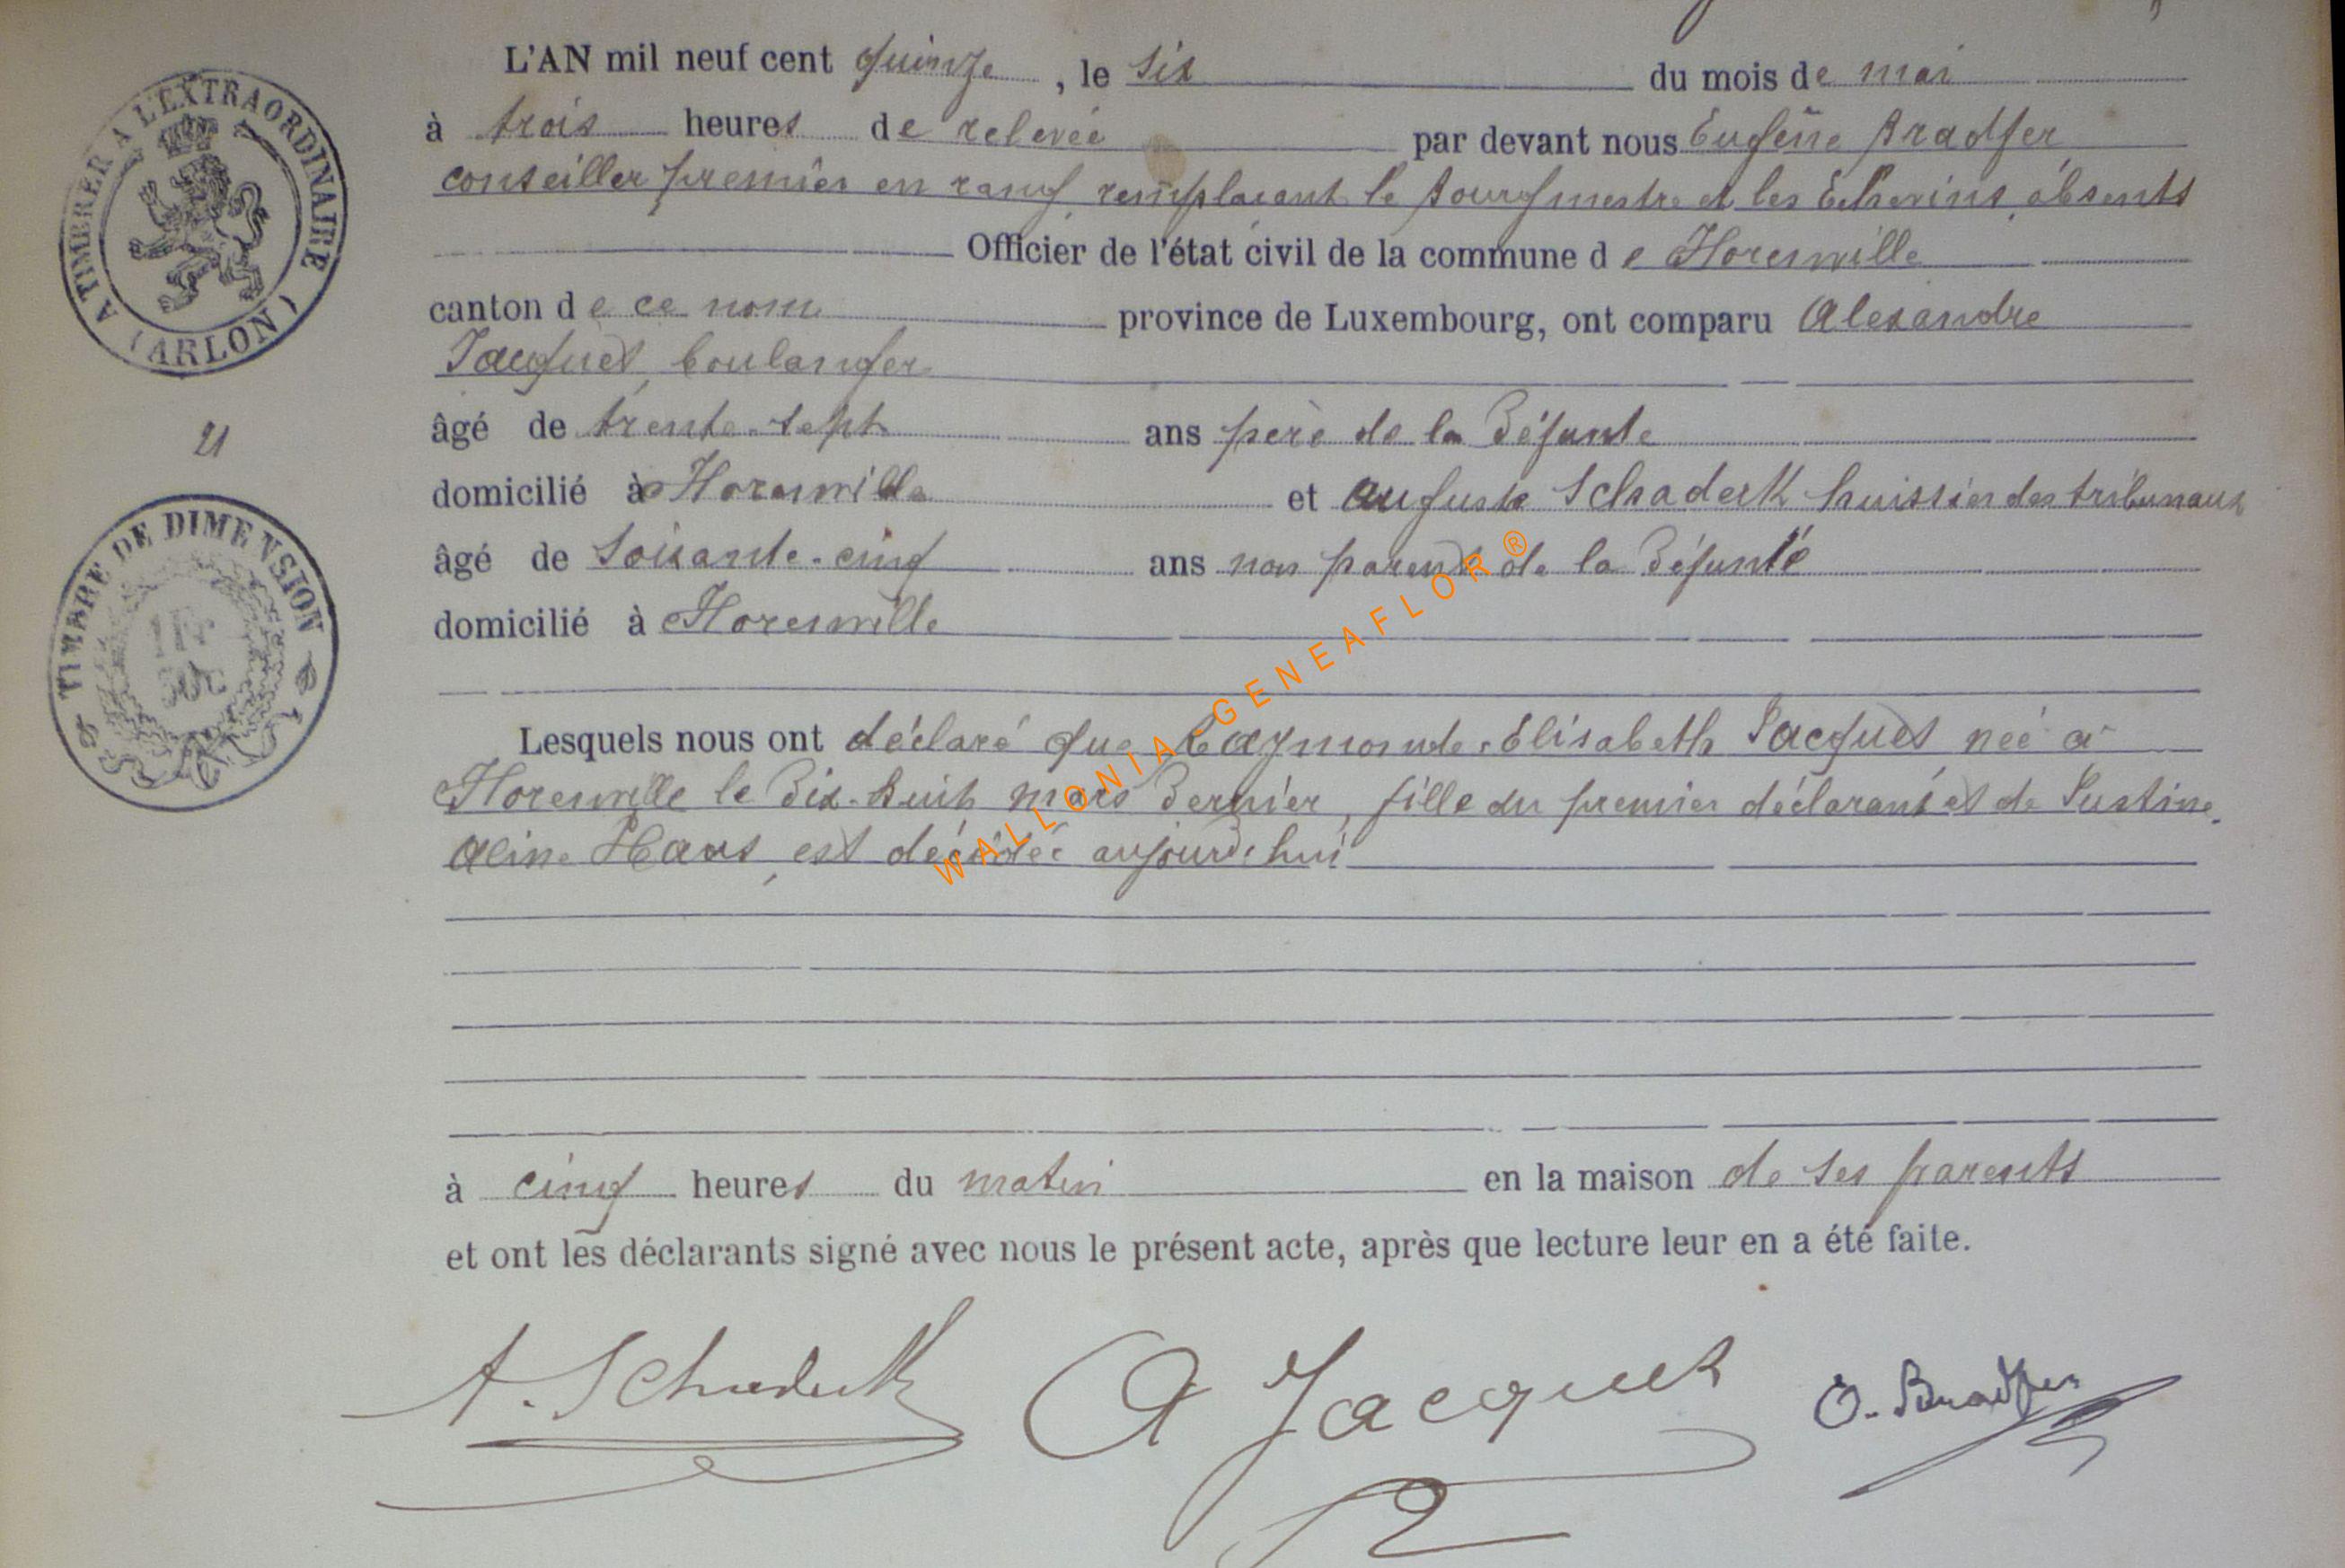 L'AN mil neuf cent quinze, le six du mois de mai
à trois heures de relevée par devant nous Eugène Bradfer
conseiller premier en rang, remplaçant le Bourgmestre et les Echevins absents
Officier de l'état civil de la commune de Florenville
canton de ce nom province de Luxembourg, ont comparu Alexandre
Jacques, boulanger
âgé de trente-sept ans père de la défunte
domicilié à Florenville et Auguste Schadeck huissier des tribunaux
âgé de soixante-cinq ans non parent de la défunte
domicilié à Florenville
Lesquels nous ont déclaré que Raymonde-Elisabeth Jacques, née à
Florenville le dix-huit mars dernier, fille du premier déclarant et de Justine
Aline Haus, est décédée aujourd'hui
à cinq heures du matin en la maison de ses parents
et ont les déclarants signé avec nous le présent acte, après que lecture leur en a été faite.
A. Schadeck A Jacques E. Bradfer
A TIMBRER A L'EXTRAORDINAIRE
(ARLON)
21
TIMBRE DE DIMENSION
WALLONIA-GENEAFLOR®